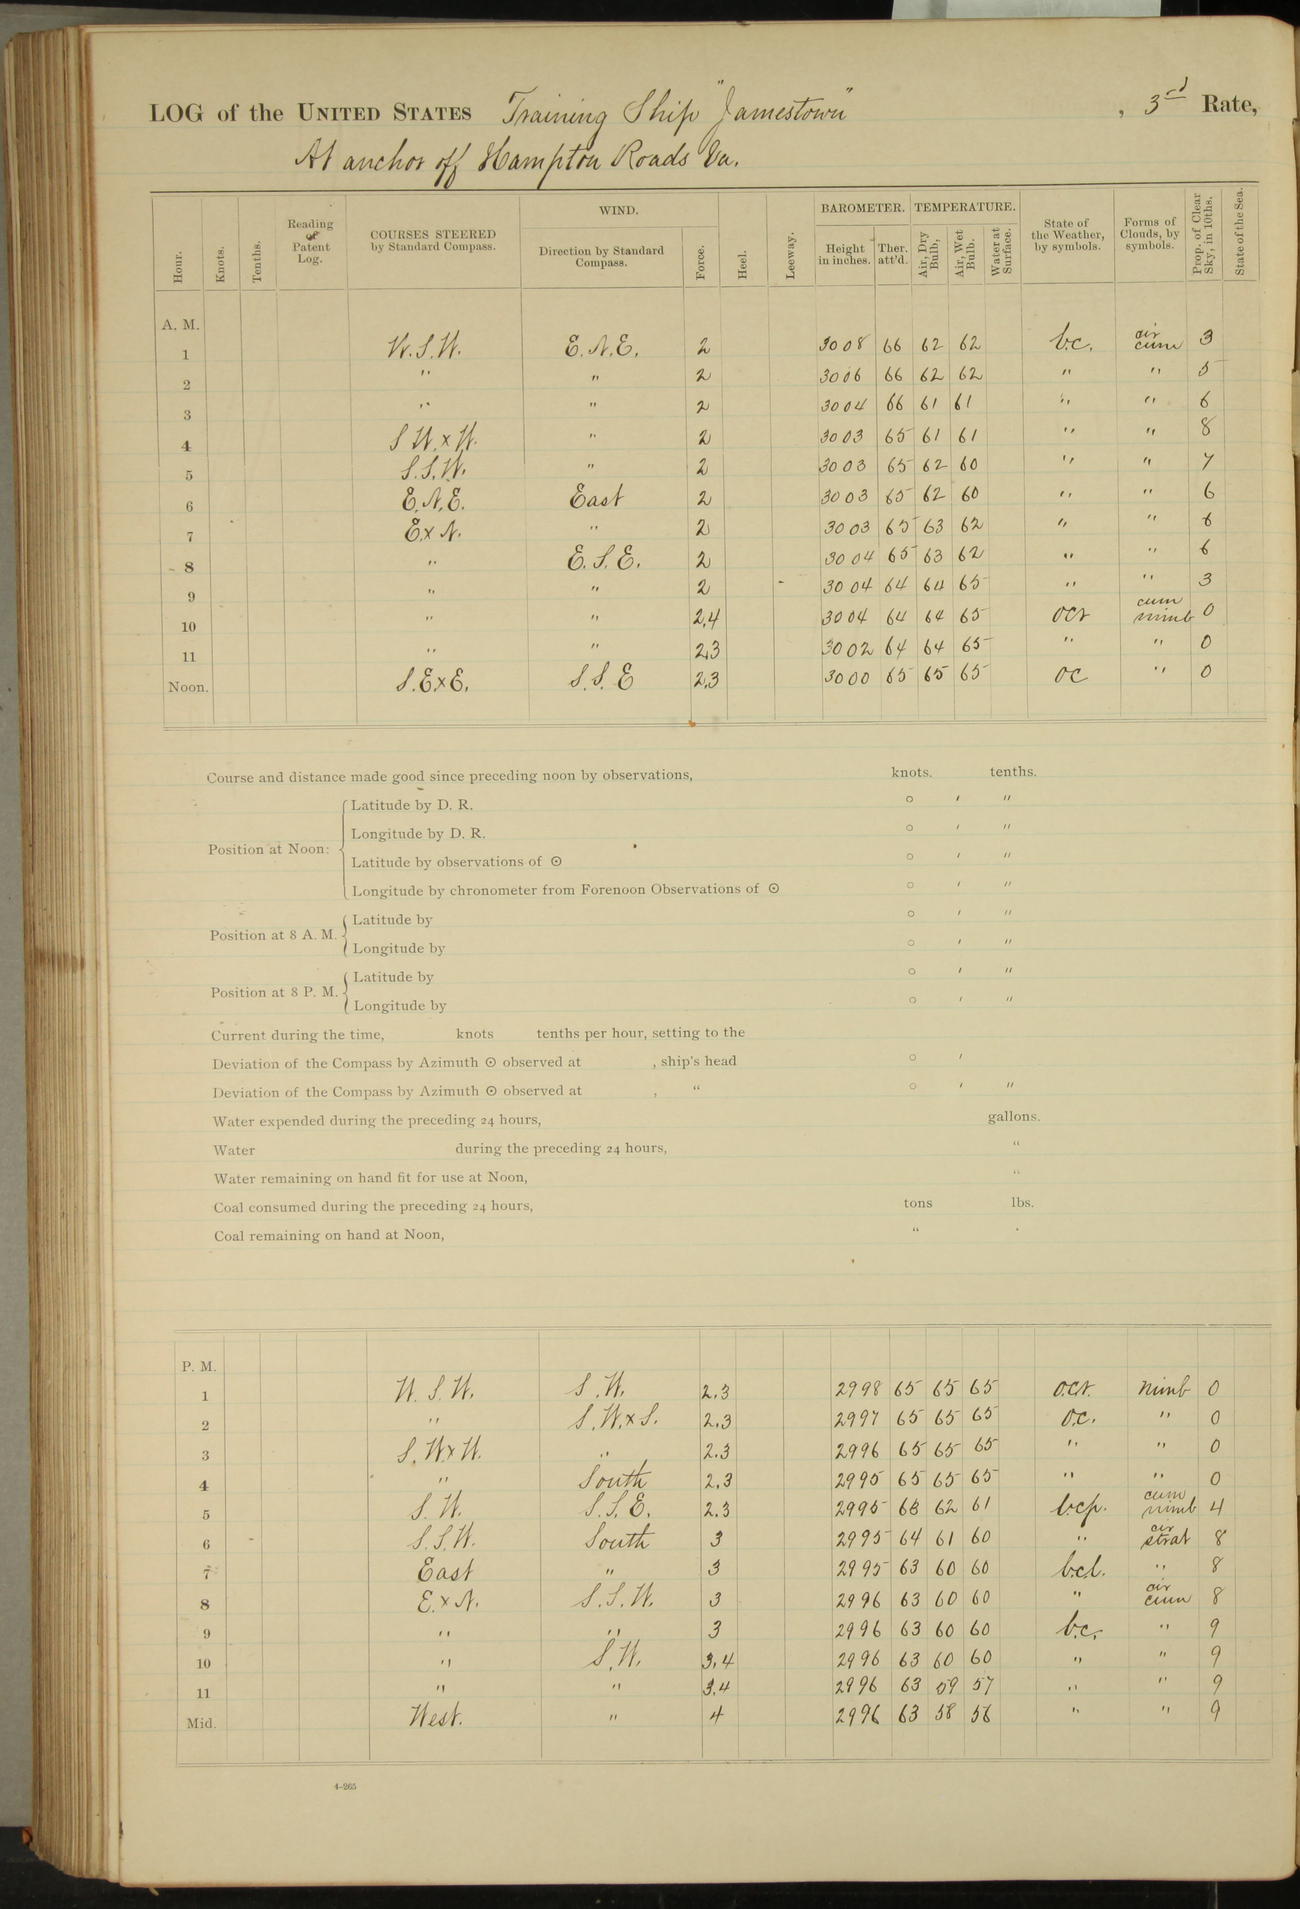 LOG of the UNITED STATES Training Ship "Jamestown" , 3rd Rate,
At anchor off Hampton Roads Va.
Hour. Knots. Tenths. Reading of Patent Log. COURSES STEERED by Standard Compass. WIND. Direction by Standard Compass. Force. Heel. Leeway. BAROMETER. Height in inches. Ther. att'd. TEMPERATURE. Air, Dry Bulb, Air, Wet Bulb. Water at Surface. State of the Weather, by symbols. Forms of Clouds, by symbols. Prop. of Clear Sky, in 10ths. State of the Sea.
A. M.
1 W.S.W. E.N.E. 2 30 08 66 62 62 b.c. cir cum 3
2 " " 2 30 06 66 62 62 " " 5
3 " " 2 30 04 66 61 61 " " 6
4 S W. x W. " 2 30 03 65 61 61 " " 8
5 S.S.W. " 2 30 03 65 62 60 " " 7
6 E.N.E. East 2 30 03 65 62 60 " " 6
7 E x N. " 2 30 03 65 63 62 " " 6
8 " E.S.E. 2 30 04 65 63 62 " " 6
9 " " 2 30 04 64 64 65 " " 3
10 " " 2,4 30 04 64 64 65 ocr cum nimb 0
11 " " 2,3 30 02 64 64 65 " " 0
Noon. S.E x E. S.S.E 2,3 30 00 65 65 65 oc " 0
Course and distance made good since preceding noon by observations, knots. tenths.
Position at Noon: Latitude by D. R. ° ′ ″
Longitude by D. R. ° ′ ″
Latitude by observations of ☉ ° ′ ″
Longitude by chronometer from Forenoon Observations of ☉ ° ′ ″
Position at 8 A. M. Latitude by ° ′ ″
Longitude by ° ′ ″
Position at 8 P. M. Latitude by ° ′ ″
Longitude by ° ′ ″
Current during the time, knots tenths per hour, setting to the
Deviation of the Compass by Azimuth ☉ observed at , ship's head ° ′
Deviation of the Compass by Azimuth ☉ observed at , " ° ′ ″
Water expended during the preceding 24 hours, gallons.
Water during the preceding 24 hours, "
Water remaining on hand fit for use at Noon, "
Coal consumed during the preceding 24 hours, tons lbs.
Coal remaining on hand at Noon, "
P. M.
1 W.S.W. S.W. 2.3 29 98 65 65 65 o.c.r. nimb 0
2 " S.W. x S. 2.3 29 97 65 65 65 o.c. " 0
3 S.W x W. " 2.3 29 96 65 65 65 " " 0
4 " South 2,3 29 95 65 65 65 " " 0
5 S.W. S.S.E. 2.3 29 95 63 62 61 b.c.p. cum nimb 4
6 S.S.W. South 3 29 95 64 61 60 " cir strat 8
7 East " 3 29 95 63 60 60 b.c.l. " 8
8 E. x N. S.S.W. 3 29 96 63 60 60 " cir cum 8
9 " " 3 29 96 63 60 60 b.c. " 9
10 " S.W. 3,4 29 96 63 60 60 " " 9
11 " " 3.4 29 96 63 59 57 " " 9
Mid. West. " 4 29 96 63 58 56 " " 9
4–265